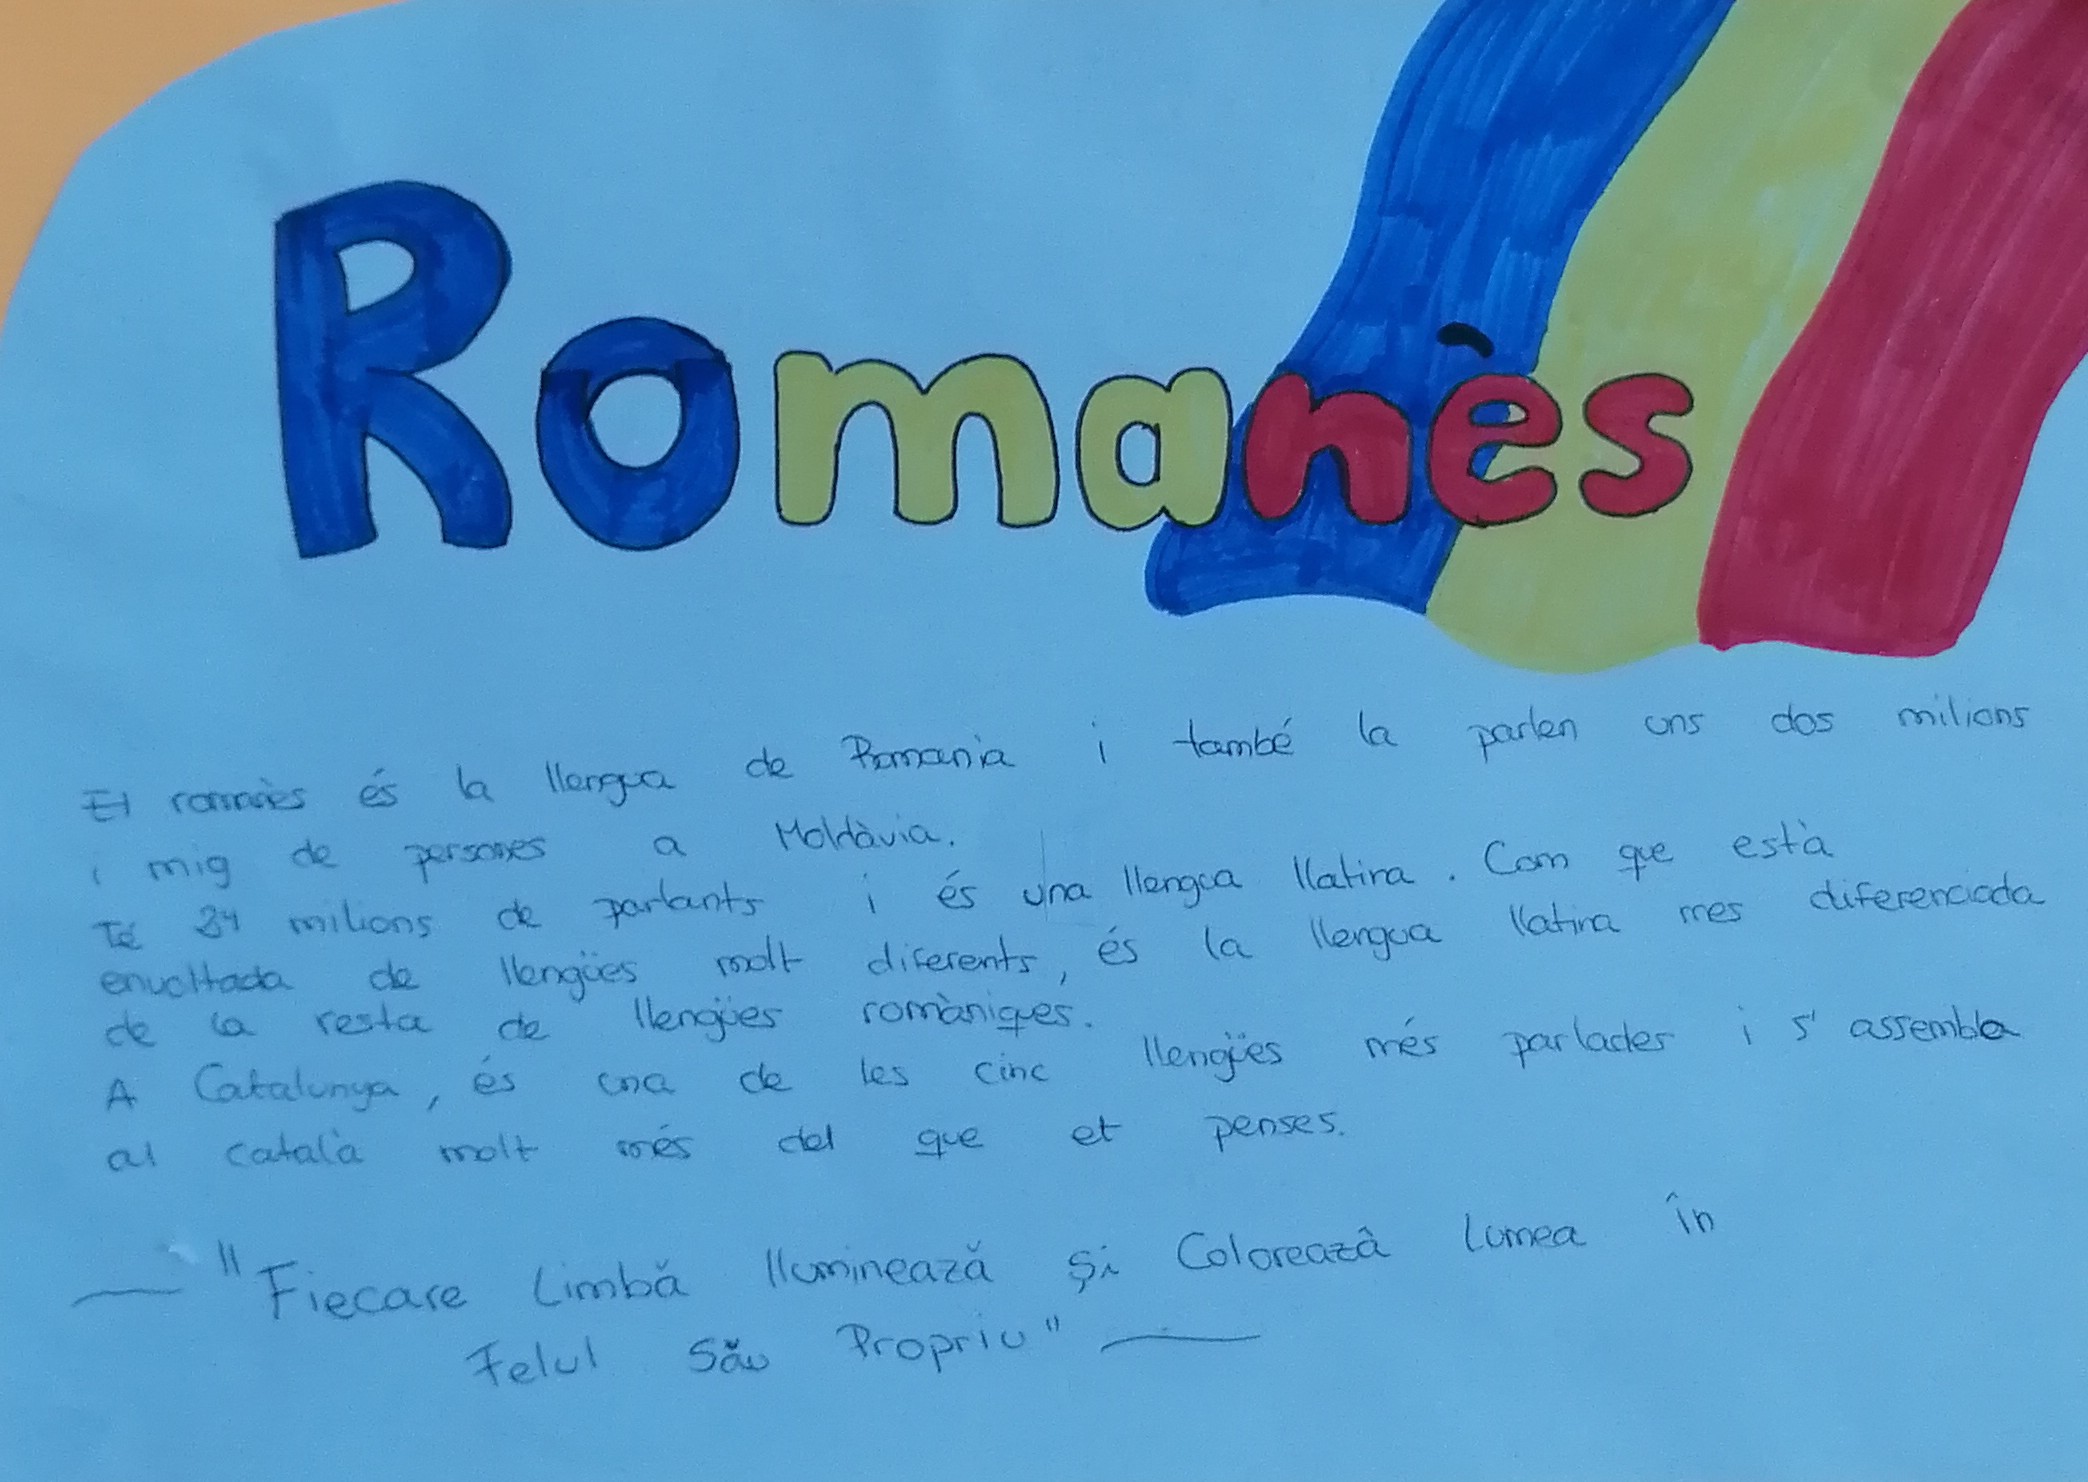 Romanès
El romanès és la llengua de Romania i també la parlen uns dos milions
i mig de persones a Moldàvia.
Té 34 milions de parlants i és una llengua llatina. Com que està
envoltada de llengües molt diferents, és la llengua llatina mes diferenciada
de la resta de llengües romàniques.
A Catalunya, és una de les cinc llengües més parlades i s'assembla
al català molt més del que et penses.
"Fiecare Limbă Iluminează și Colorează Lumea în
Felul Său Propriu"